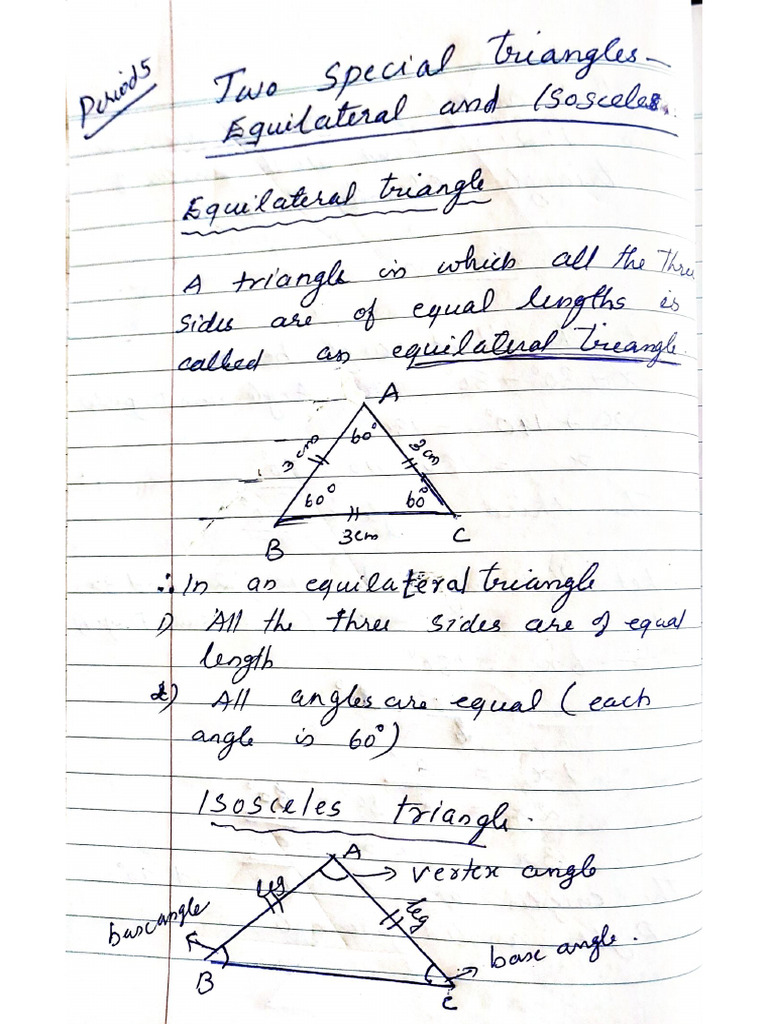 Period 5
Two Special triangles -
Equilateral and Isosceles.
Equilateral triangle
A triangle in which all the three
sides are of equal lengths is
called an equilateral triangle.
A
3 cm 60° 3 cm
60° 60°
B 3cm C
∴ In an equilateral triangle
1) All the three sides are of equal
length
2) All angles are equal (each
angle is 60°)
Isosceles triangle.
A
leg → vertex angle
base angle leg
B → base angle.
C